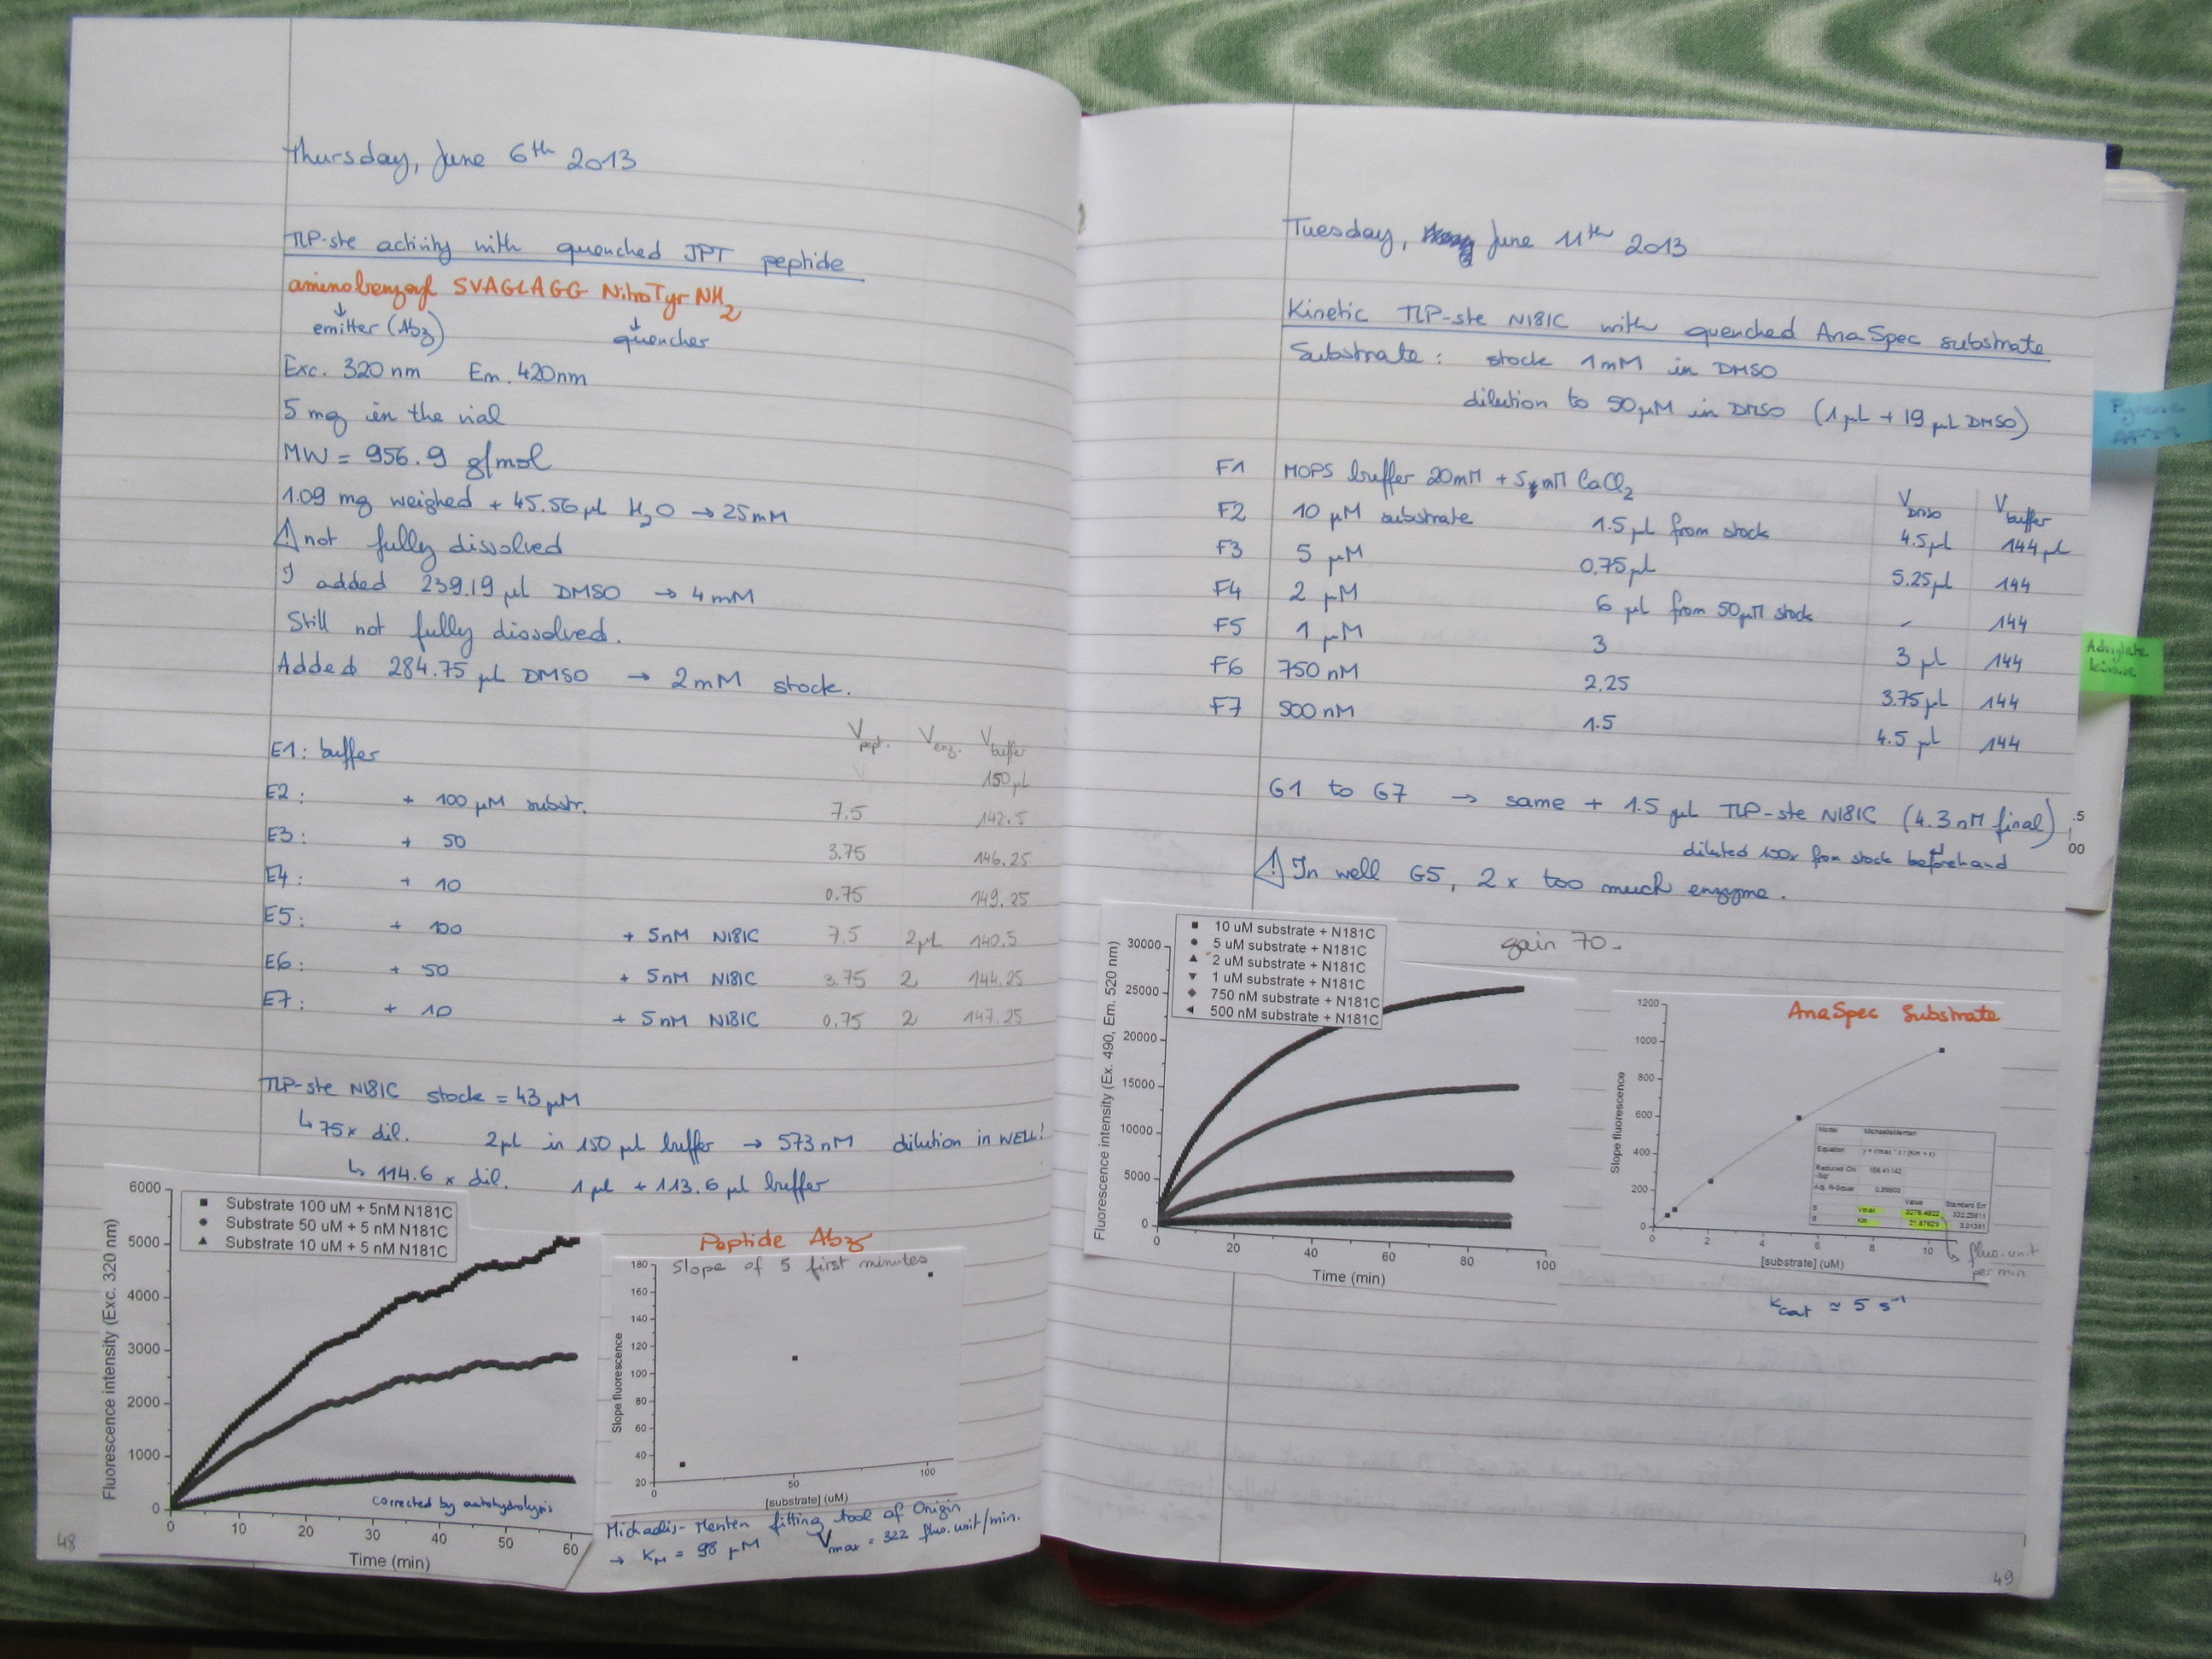 Thursday, June 6th 2013
TLP-ste activity with quenched JPT peptide
aminobenzoyl SVAGLAGG NitroTyr NH2
↓ ↓
emitter (Abz) quencher
Exc. 320 nm Em. 420nm
5 mg in the vial
MW = 956.9 g/mol
1.09 mg weighed + 45.56 µL H2O → 25 mM
⚠ not fully dissolved
I added 239.19 µL DMSO → 4 mM
Still not fully dissolved.
Added 284.75 µL DMSO → 2mM stock.
Vpept. Venz. Vbuffer
E1: buffer 150 µL
E2: + 100 µM substr. 7.5 142.5
E3: + 50 3.75 146.25
E4: + 10 0.75 149.25
E5: + 100 + 5nM N181C 7.5 2µL 140.5
E6: + 50 + 5nM N181C 3.75 2 144.25
E7: + 10 + 5nM N181C 0.75 2 147.25
TLP-ste N181C stock = 43 µM
↳ 75x dil. 2µL in 150 µL buffer → 573 nM dilution in WELL!
↳ 114.6 x dil. 1 µL + 113.6 µL buffer
Substrate 100 uM + 5nM N181C
Substrate 50 uM + 5 nM N181C
Substrate 10 uM + 5 nM N181C
Fluorescence intensity (Exc. 320 nm)
6000
5000
4000
3000
2000
1000
0
corrected by autohydrolysis
0 10 20 30 40 50 60
Time (min)
Peptide Abz
Slope of 5 first minutes
Slope fluorescence
180
160
140
120
100
80
60
40
20
0 50 100
[substrate] (uM)
Michaelis-Menten fitting tool of Origin
→ KM = 98 µM Vmax = 322 fluo.unit/min.
48
Tuesday, June 11th 2013
Kinetic TLP-ste N181C with quenched AnaSpec substrate
Substrate: stock 1mM in DMSO
dilution to 50µM in DMSO (1 µL + 19 µL DMSO)
VDMSO Vbuffer
F1 MOPS buffer 20mM + 5 mM CaCl2
F2 10 µM substrate 1.5 µL from stock 4.5µL 144 µL
F3 5 µM 0.75 µL 5.25µL 144
F4 2 µM 6 µL from 50µM stock - 144
F5 1 µM 3 3 µL 144
F6 750 nM 2.25 3.75 µL 144
F7 500 nM 1.5 4.5 µL 144
G1 to G7 → same + 1.5 µL TLP-ste N181C (4.3 nM final)
diluted 100x from stock beforehand
⚠ In well G5, 2 x too much enzyme.
gain 70.
10 uM substrate + N181C
5 uM substrate + N181C
2 uM substrate + N181C
1 uM substrate + N181C
750 nM substrate + N181C
500 nM substrate + N181C
Fluorescence intensity (Ex. 490, Em. 520 nm)
30000
25000
20000
15000
10000
5000
0
0 20 40 60 80 100
Time (min)
AnaSpec Substrate
Slope fluorescence
1200
1000
800
600
400
200
0
Model MichaelisMenten
Equation y = Vmax * x / (Km + x)
Reduced Chi-Sqr 156.41142
Adj. R-Square
Value Standard Err
Vmax 3276.4922
Km 21.87929
0 2 4 6 8 10
[substrate] (uM)
fluo.unit per min
kcat ≃ 5 s-1
49
Pyrene
Adenylate kinase
.5
00